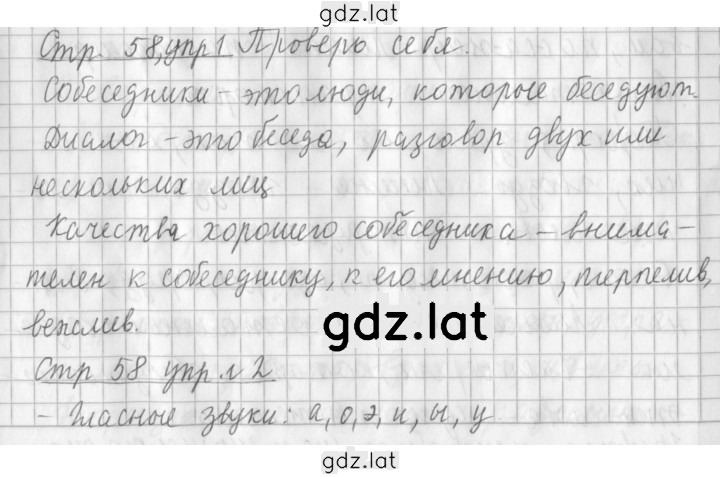 gdz.lat
Стр. 58, упр 1 Проверь себя.
Собеседники - это люди, которые беседуют.
Диалог - это беседа, разговор двух или
нескольких лиц
Качества хорошего собеседника - внима-
телен к собеседнику, к его мнению, терпелив,
вежлив.
gdz.lat
Стр 58 упр. 2
- Гласные звуки: а, о, э, и, ы, у
gdz.lat